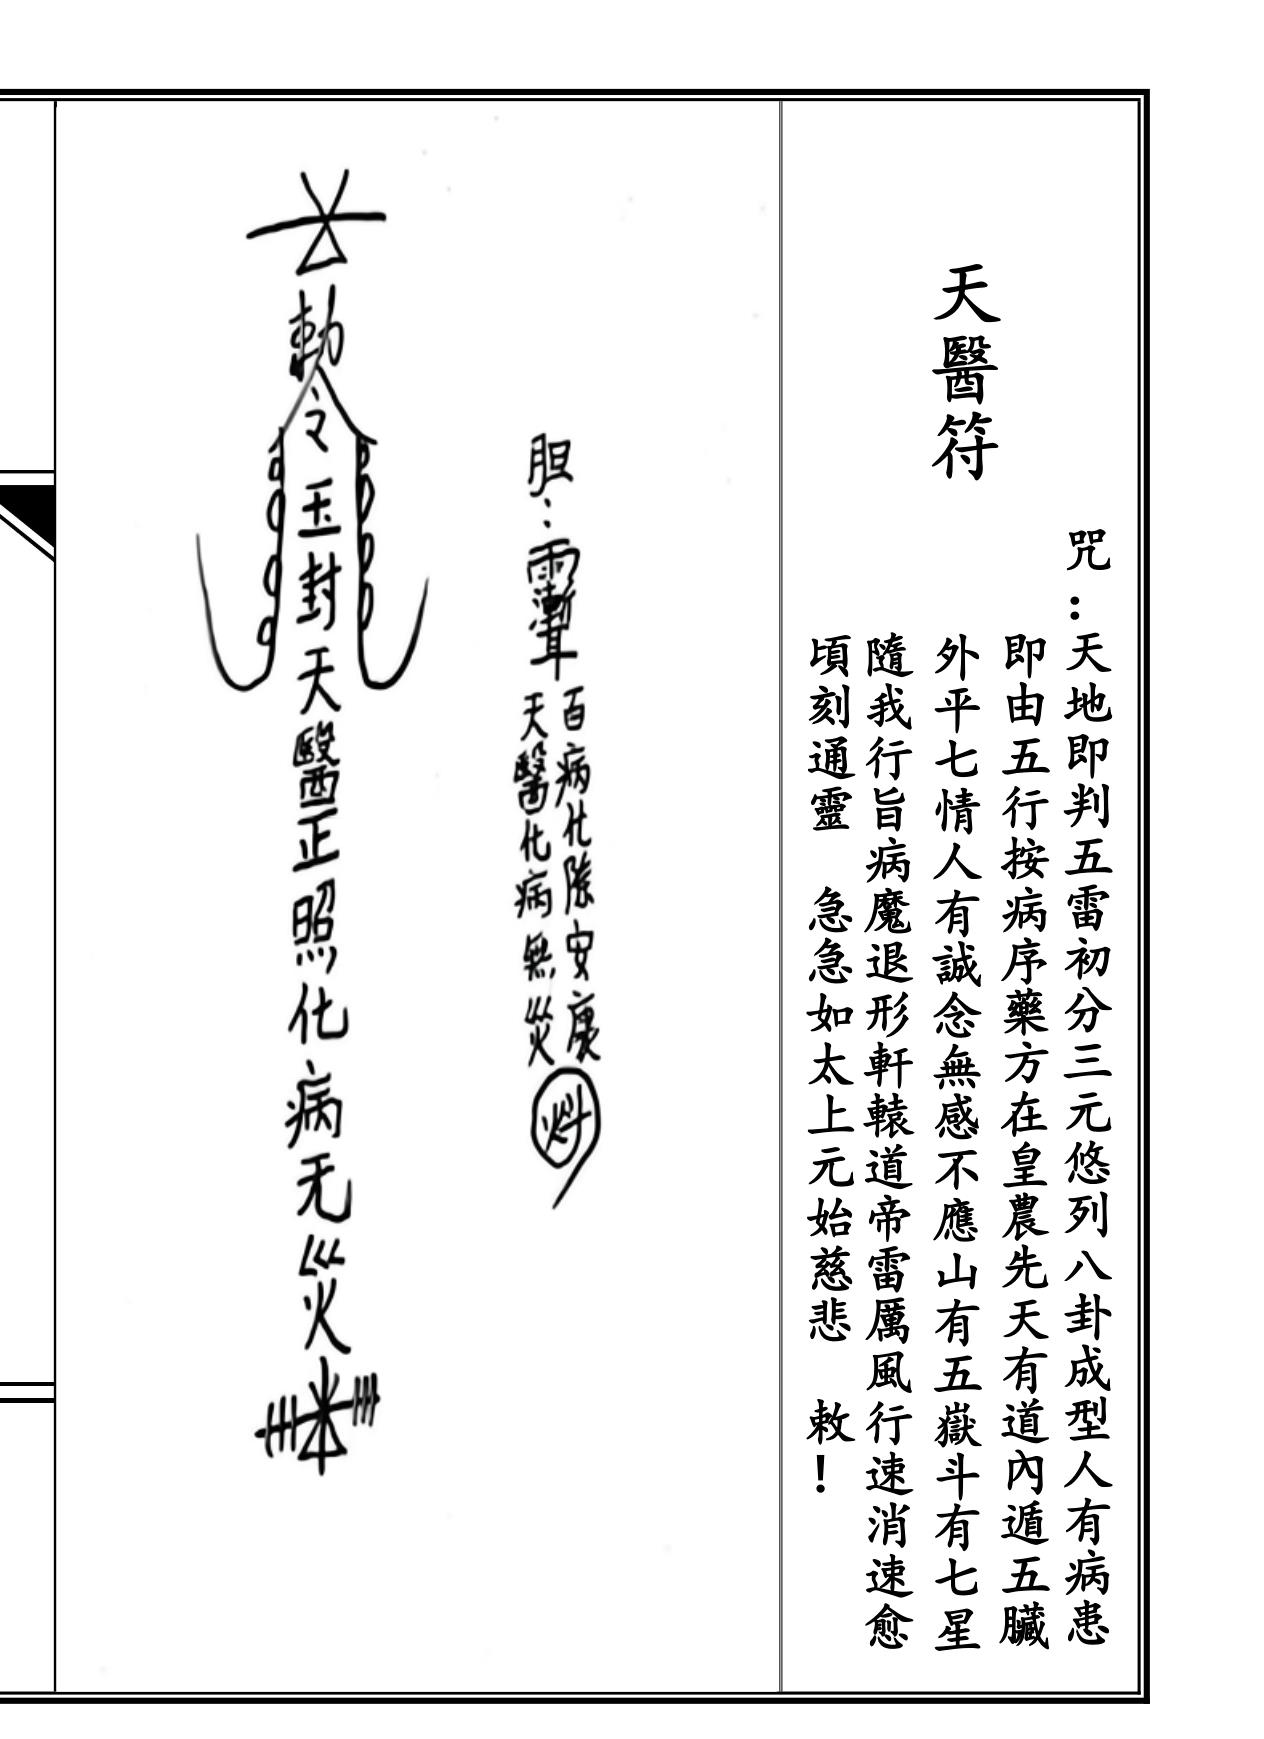 天醫符
咒：天地即判五雷初分三元悠列八卦成型人有病患
即由五行按病序藥方在皇農先天有道內遁五臟
外平七情人有誠念無感不應山有五嶽斗有七星
隨我行旨病魔退形軒轅道帝雷厲風行速消速愈
頃刻通靈 急急如太上元始慈悲 敕！
胆：
百病化除安康
天醫化病無災
勅令玉封天醫正照化病无災